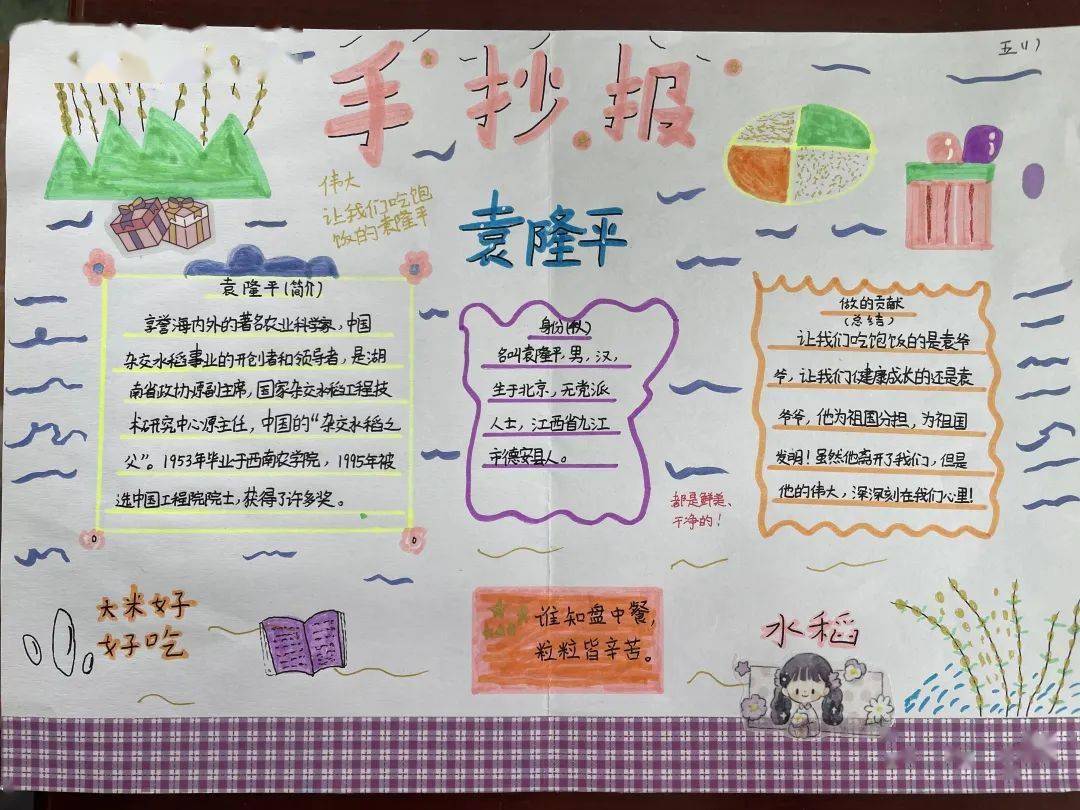 五(1)
手抄报
伟大
让我们吃饱
饭的袁隆平
袁隆平
袁隆平(简介)
享誉海内外的著名农业科学家,中国
杂交水稻事业的开创者和领导者,是湖
南省政协原副主席,国家杂交水稻工程技
术研究中心原主任,中国的“杂交水稻之
父”。1953年毕业于西南农学院,1995年被
选中国工程院院士,获得了许多奖。
名叫袁隆平,男,汉,
生于北京,无党派
人士,江西省九江
市德安县人。
做的贡献
(总结)
让我们吃饱饭的是袁爷
爷,让我们健康成长的还是袁
爷爷,他为祖国分担,为祖国
发明!虽然他离开了我们,但是
他的伟大,深深刻在我们心里!
都是鲜美、
干净的!
大米好子
好吃
谁知盘中餐,
粒粒皆辛苦。
水稻